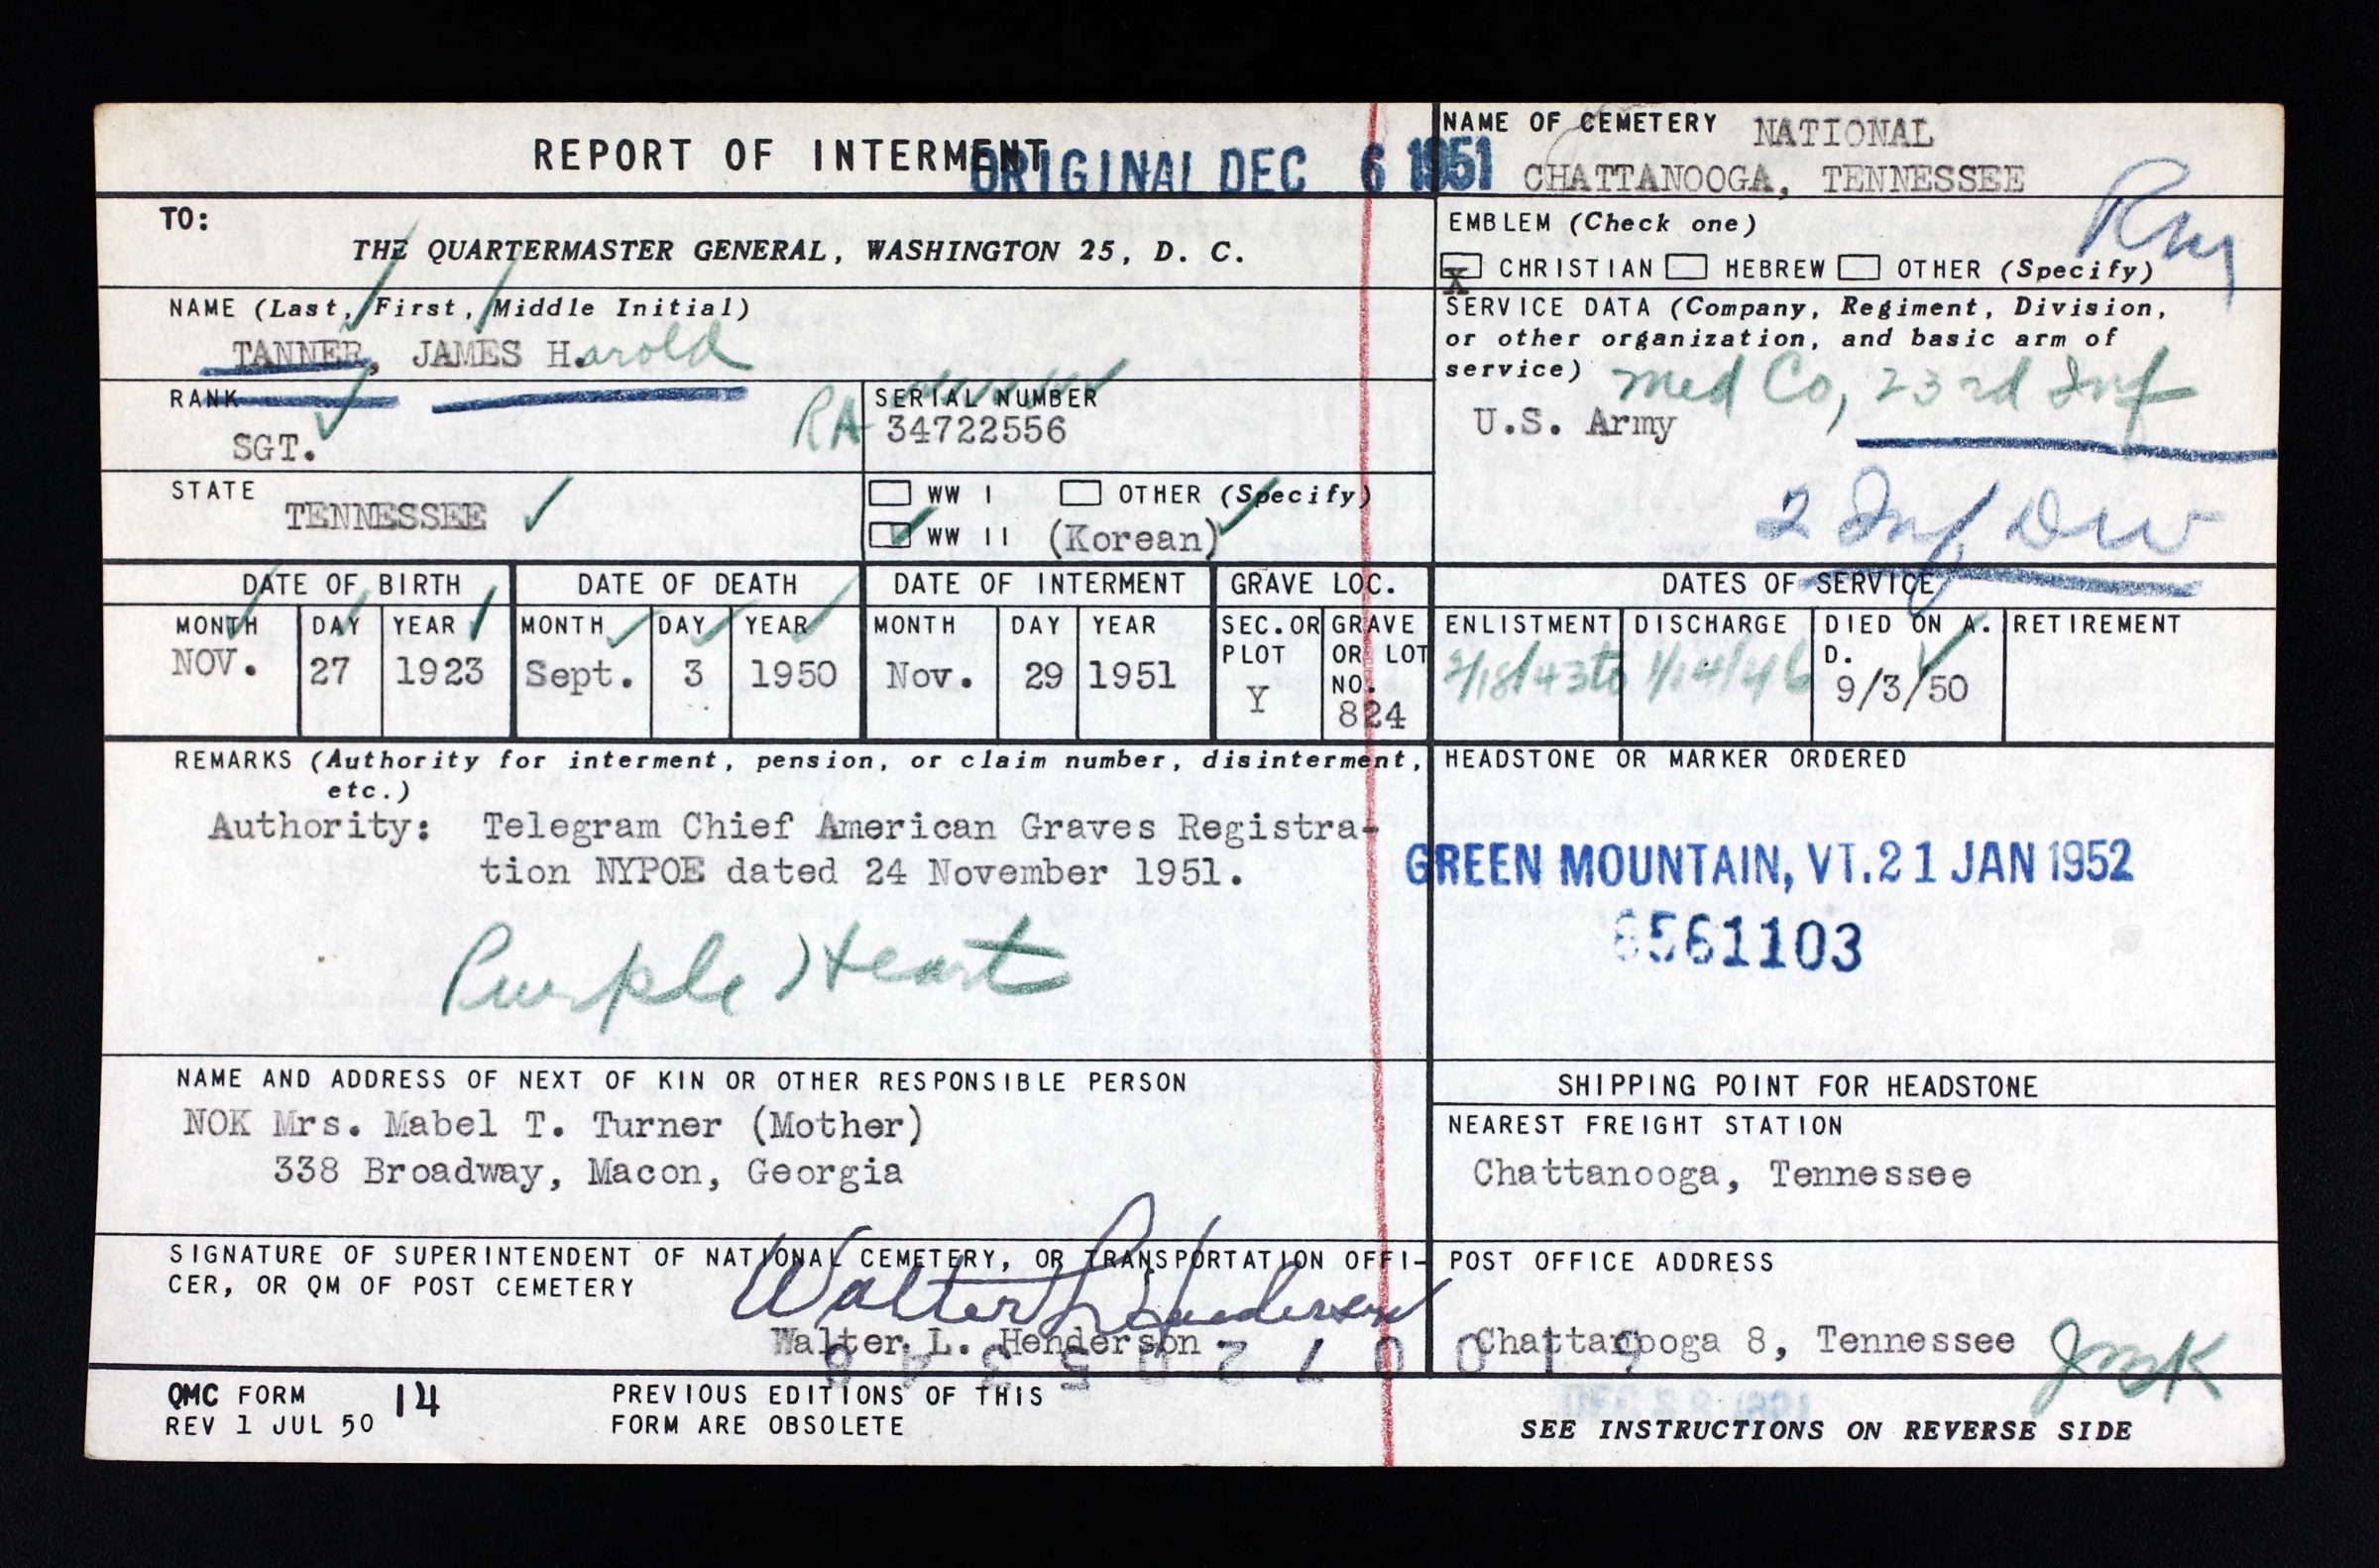 REPORT OF INTERMENT
ORIGINAL DEC 6 1951
NAME OF CEMETERY NATIONAL
CHATTANOOGA, TENNESSEE
TO:
THE QUARTERMASTER GENERAL, WASHINGTON 25, D. C.
EMBLEM (Check one)
X CHRISTIAN HEBREW OTHER (Specify)
NAME (Last, First, Middle Initial)
TANNER, JAMES H.arold
SERVICE DATA (Company, Regiment, Division,
or other organization, and basic arm of
service) Med Co, 23rd Inf
U.S. Army
2 Inf Div
RANK
SGT.
RA
SERIAL NUMBER
34722556
STATE
TENNESSEE
WW I OTHER (Specify)
WW II (Korean)
DATE OF BIRTH DATE OF DEATH DATE OF INTERMENT GRAVE LOC. DATES OF SERVICE
MONTH DAY YEAR MONTH DAY YEAR MONTH DAY YEAR SEC.OR PLOT GRAVE OR LOT NO. ENLISTMENT DISCHARGE DIED ON A. D. RETIREMENT
NOV. 27 1923 Sept. 3 1950 Nov. 29 1951 Y 824 2/18/43 to 1/14/46 9/3/50
REMARKS (Authority for interment, pension, or claim number, disinterment,
etc.)
Authority: Telegram Chief American Graves Registra-
tion NYPOE dated 24 November 1951.
Purple Heart
HEADSTONE OR MARKER ORDERED
GREEN MOUNTAIN, VT. 21 JAN 1952
6561103
NAME AND ADDRESS OF NEXT OF KIN OR OTHER RESPONSIBLE PERSON
NOK Mrs. Mabel T. Turner (Mother)
338 Broadway, Macon, Georgia
SHIPPING POINT FOR HEADSTONE
NEAREST FREIGHT STATION
Chattanooga, Tennessee
SIGNATURE OF SUPERINTENDENT OF NATIONAL CEMETERY, OR TRANSPORTATION OFFI-
CER, OR QM OF POST CEMETERY
Walter L Henderson
Walter L. Henderson
POST OFFICE ADDRESS
Chattanooga 8, Tennessee
JMK
QMC FORM 14
REV 1 JUL 50
PREVIOUS EDITIONS OF THIS
FORM ARE OBSOLETE
SEE INSTRUCTIONS ON REVERSE SIDE